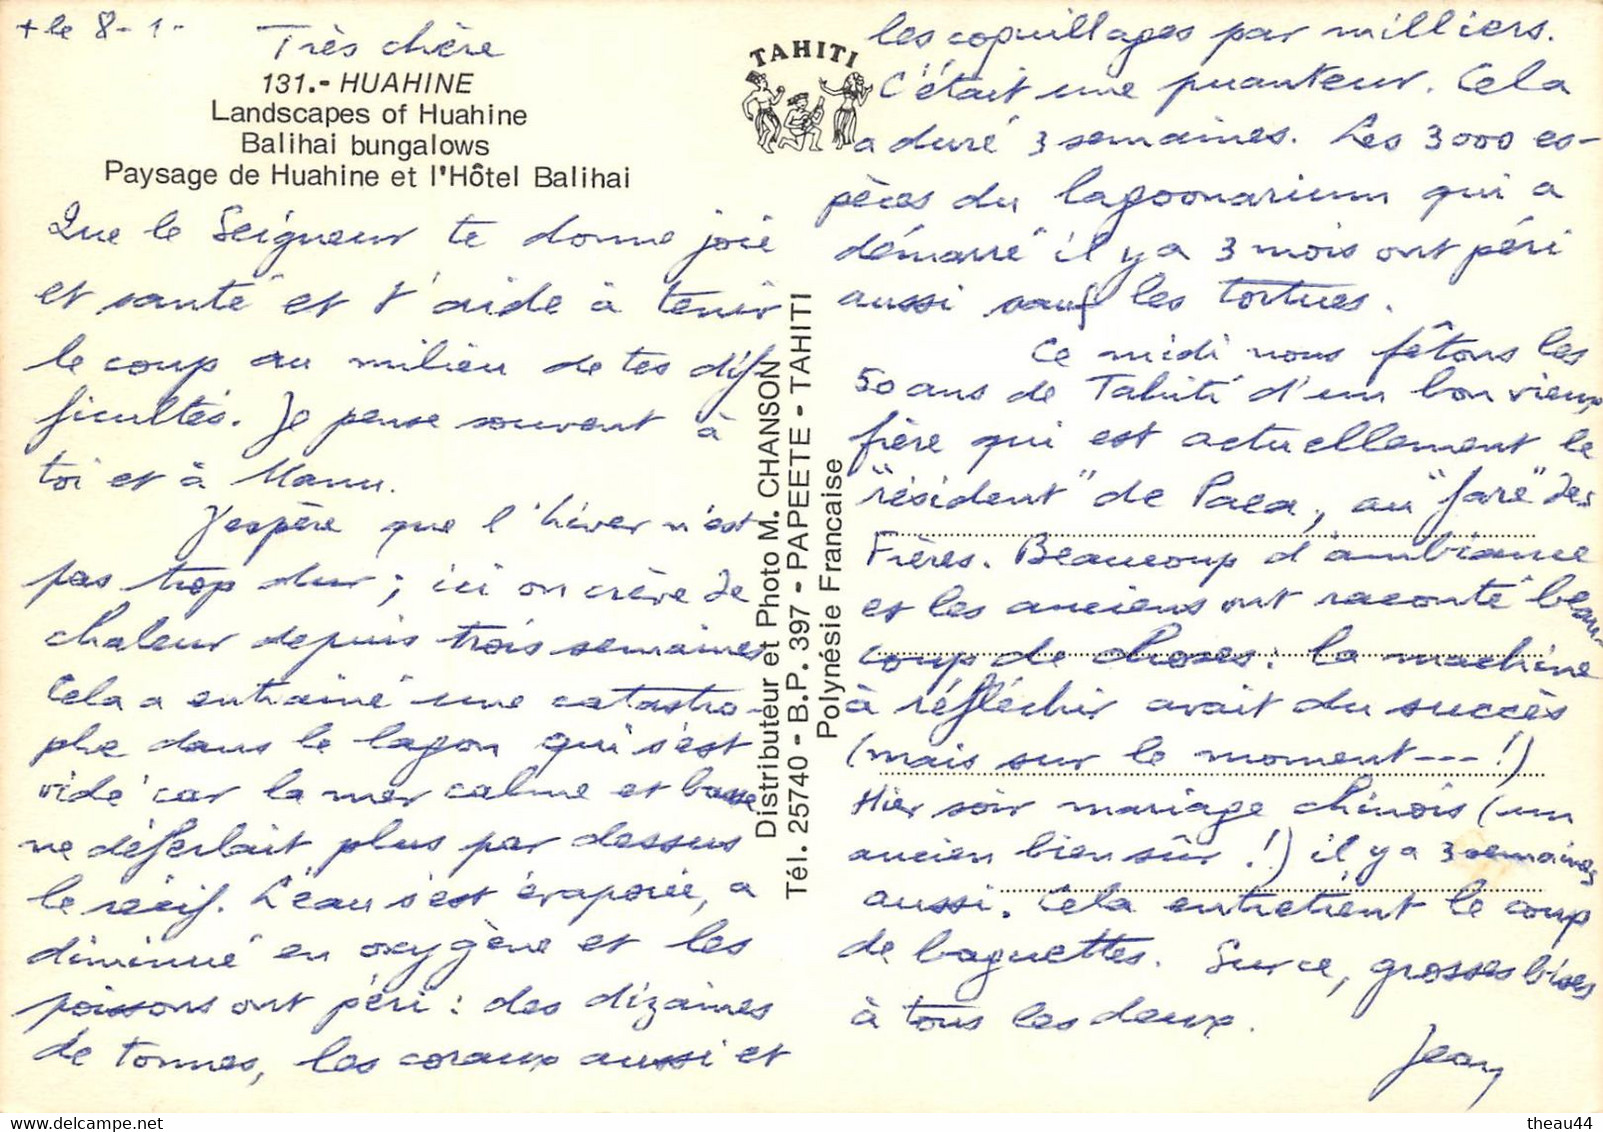 + le 8-1-
Très chère
131.- HUAHINE
Landscapes of Huahine
Balihai bungalows
Paysage de Huahine et l'Hôtel Balihai
Que le Seigneur te donne joie
et santé et t'aide à tenir
le coup au milieu de tes dif-
ficultés. Je pense souvent à
toi et à Manu.
J'espère que l'hiver n'est
pas trop dur ; ici on crève de
chaleur depuis trois semaines
Cela a entraîné une catastro-
phe dans le lagon qui s'est
vidé car la mer calme et basse
ne déferlait plus par dessus
le récif. L'eau s'est évaporée, a
diminué en oxygène et les
poissons ont péri : des dizaines
de tonnes, les coraux aussi et
TAHITI
Distributeur et Photo M. CHANSON
Tél. 25740 - B.P. 397 - PAPEETE - TAHITI
Polynésie Francaise
les coquillages par milliers.
C'était une puanteur. Cela
a duré 3 semaines. Les 3000 es-
pèces du lagoonarium qui a
démarré il y a 3 mois ont péri
aussi sauf les tortues.
Ce midi nous fêtons les
50 ans de Tahiti d'un bon vieux
frère qui est actuellement le
"résident" de Paea, au "fare" des
Frères. Beaucoup d'ambiance
et les anciens ont raconté beau-
coup de choses : la machine
à réfléchir avait du succès
(mais sur le moment --- !)
Hier soir mariage chinois (un
ancien bien sûr !) il y a 3 semaines
aussi. Cela entretient le coup
de baguettes. Sur ce, grosses bises
à tous les deux.
Jean
theau44